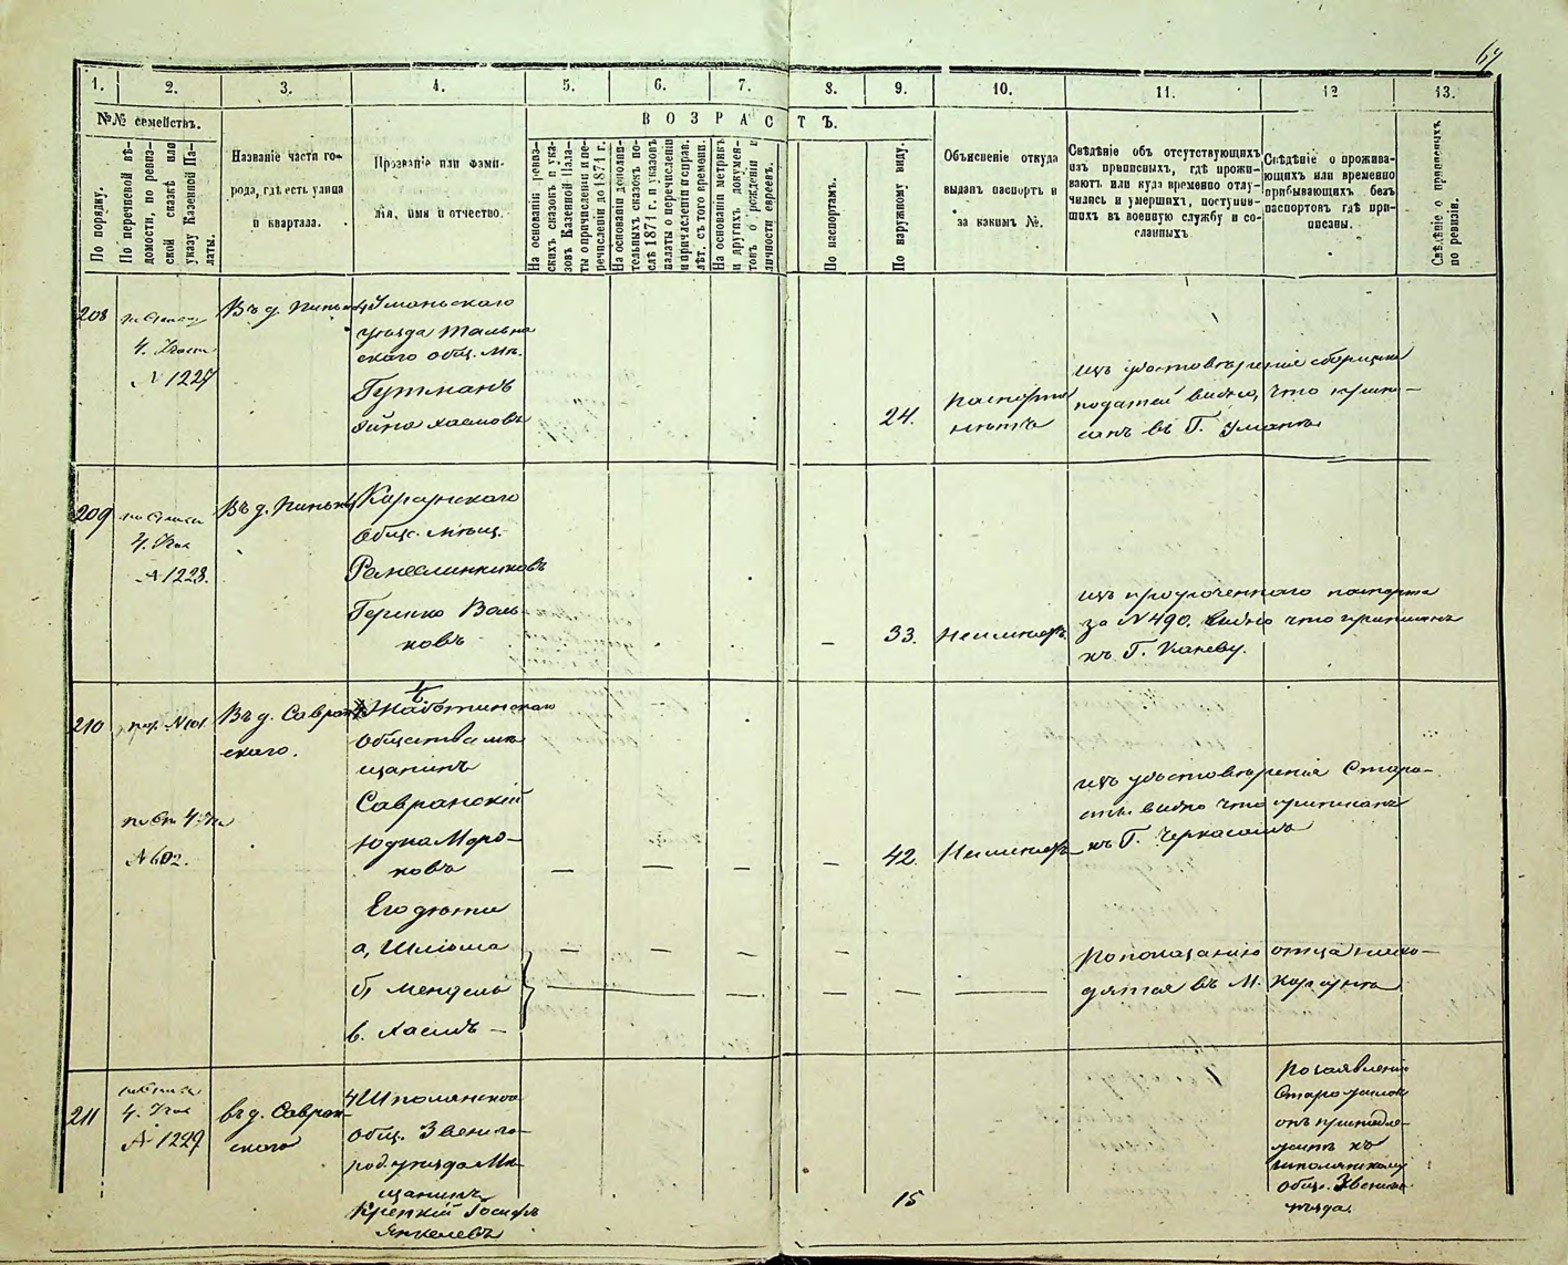 67
1. 2. 3. 4. 5. 6. 7. 8. 9. 10. 11. 12 13.
№№ семействъ.
В О З Р А С Т Ъ.
По порядку.
По перечневой вѣ-
домости, по ревиз-
ской сказкѣ или
указу Казенной Па-
латы.
Названіе части го-
рода, гдѣ есть улица
и квартала.
Прозваніе или фами-
лія, имя и отчество.
На основаніи ревиз-
скихъ сказокъ и ука-
зовъ Казенной Пала-
ты о причисленіи и пе-
речисленіи до 1871 г.
На основаніи дополни-
тельныхъ сказокъ по-
слѣ 1871 г. и указовъ
палаты о перечисленіи
и причисленіи исправ.
лѣт. съ того времени.
На основаніи метрикъ
и другихъ докумен-
товъ о рожденіи и
личности евреевъ.
По паспортамъ.
По наружному виду.
Объясненіе откуда
выданъ паспортъ и
за какимъ №.
Свѣдѣніе объ отсутствующихъ
изъ приписныхъ, гдѣ прожи-
ваютъ или куда временно отлу-
чились и умершихъ, поступив-
шихъ въ военную службу и со-
сланныхъ
Свѣдѣніе о прожива-
ющихъ или временно
прибывающихъ безъ
паспортовъ гдѣ при-
писаны.
Свѣдѣніе о приписныхъ
по ревизіи.
208
4. Части
№ 1227
Въ д. Пиньк
Уманьскаго
уѣзда Тальна
скаго общ. мѣ.
Гутманъ
Хаимовъ
24.
паспорта
нѣтъ
изъ удостовѣренія сборщика
податей видно, что припи-
санъ въ Г. Умань
209
4.
№ 1228.
Въ д. Пиньк
Корсунскаго
Общ. мѣщ.
Ремесленниковъ
Гершко Воль
ковъ
—
33.
Неимѣетъ
изъ просроченнаго паспорта
за № 490. видно что приписанъ
къ Г. Каневу.
210
№ 101
№ 602.
Въ д. Савран
скаго.
Жаботинскаго
общества мѣ
щанинъ
Савранскій
Юдка Мордо-
ковъ
— — — —
42.
Неимѣетъ
изъ удостовѣренія Старо-
сты видно что приписанъ
къ Г. Черкасамъ
Его дѣти
а, Шліома — — — —
б, Мендель — — — — —
в. Хаимъ —
По показанію отца нахо-
дятся въ М. Корсунѣ
211
4.
№ 1229
въ д. Савран-
скаго
Шполянскаго
общ. Звениго-
род. уѣзда Мѣ-
щанинъ
Крепкій Іосифъ
Янкелевъ
15
По заявленію
Старо
онъ принадле-
житъ къ
шполянскому
общ. Звениг
уѣзда.